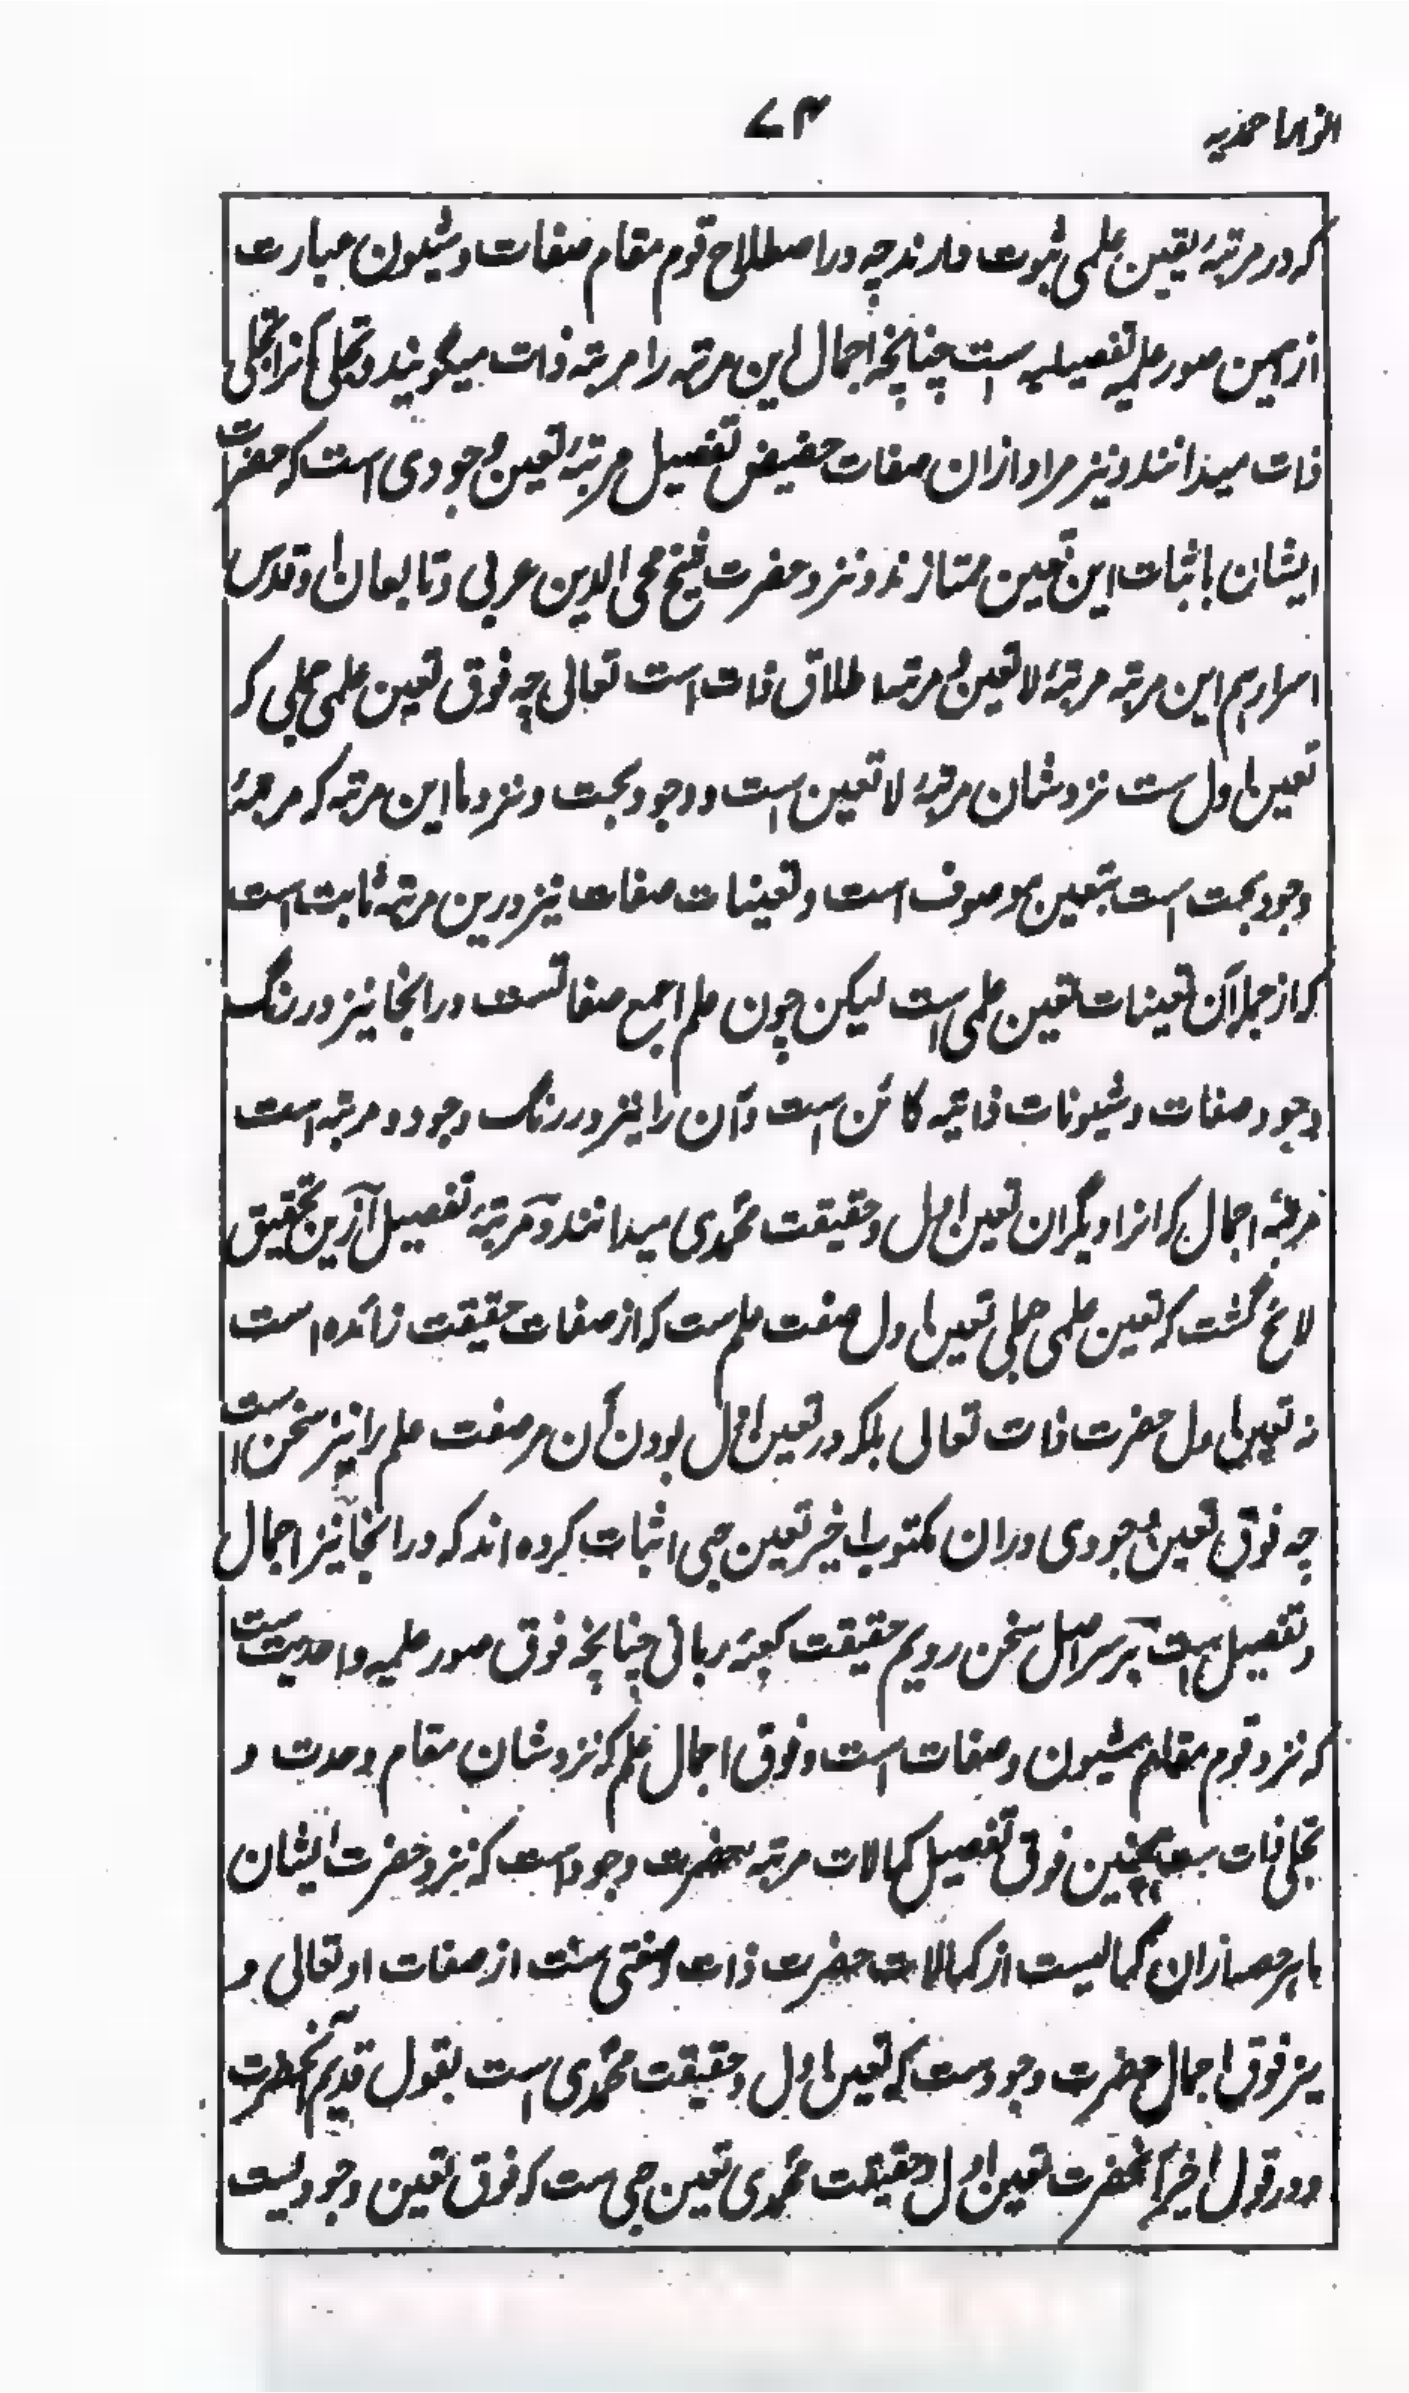 انوار احمدیہ
۷۴
که در مرتبهٔ یقین علمی ثبوت دارند چه در اصطلاح قوم مقام صفات و شیون عبارت
از همین صور علمیه تفصیلیه است چنانچه اجمال این مرتبه را مرتبه ذات میگویند و تجلی آنرا تجلی
ذات میدانند و نیز مراد ازان صفات حضیض تفصیل مرتبهٔ تعین وجودی است که حضرات
ایشان باثبات این تعین ممتازند و نزد حضرت شیخ محی الدین عربی و تابعان او قدس
اسرارهم این مرتبه مرتبهٔ لا تعین و مرتبه اطلاق ذات است تعالی چه فوق تعین علمی جملی که
تعین اول ست نزد شان مرتبهٔ لا تعین است و وجود بحت و نزد ما این مرتبه که مرتبهٔ
وجود بحت است بتعین موصوف است و تعینات صفات نیز درین مرتبه ثابت است
که از جمله آن تعینات تعین علمی است لیکن چون علم اجمع صفاتست در انجا نیز در رنگ
وجود صفات و شیونات ذاتیه کائن است و آن را نیز در رنگ وجود دو مرتبه است
مرتبهٔ اجمال که انرا دیگران تعین اول و حقیقت محمدی میدانند و مرتبهٔ تفصیل ازین تحقیق
لائح گشت که تعین علمی جملی تعین اول صفت علم ست که از صفات حقیقت زائده است
نه تعین اول حضرت ذات تعالی بلکه در تعین اول بودن آن مر صفت علم را نیز سخن است
چه فوق تعین وجودی دران مکتوب اخیر تعین حبی اثبات کرده اند که در انجا نیز اجمال
و تفصیل است بر سر اصل سخن رویم حقیقت کعبهٔ ربانی چنانچه فوق صور علمیه واحدیت ست
که نزد قوم مقام شیون و صفات است و فوق اجمال علم که نزد شان مقام وحدت و
تجلی ذات ست همچنین فوق تفصیل کمالات مرتبه حضرت وجود است که نزد حضرت ایشان
ما هر حصه ازان کمالیست از کمالات حضرت ذات و صفتی ست از صفات او تعالی و
نیز فوق اجمال حضرت وجودست که تعین اول و حقیقت محمدی است بقول قدیم آنحضرت
و در قول اخیر آنحضرت تعین اول و حقیقت محمدی تعین حبی ست که فوق تعین وجودیست